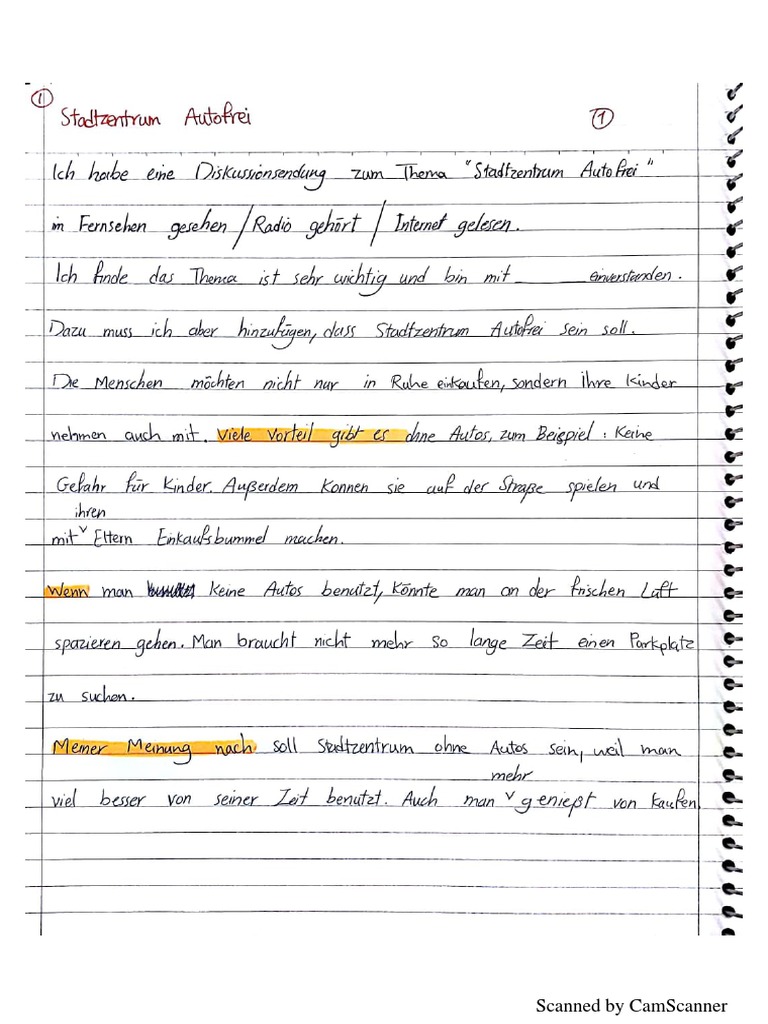 ①
Stadtzentrum Autofrei ①
Ich habe eine Diskussionsendung zum Thema "Stadtzentrum Autofrei"
in Fernsehen gesehen / Radio gehört / Internet gelesen.
Ich finde das Thema ist sehr wichtig und bin mit ________ einverstanden.
Dazu muss ich aber hinzufügen, dass Stadtzentrum Autofrei sein soll.
Die Menschen möchten nicht nur in Ruhe einkaufen, sondern ihre Kinder
nehmen auch mit. Viele Vorteil gibt es ohne Autos, zum Beispiel : Keine
Gefahr für Kinder. Außerdem Konnen sie auf der Straße spielen und
ihren
mit ˅ Eltern Einkaufsbummel machen.
Wenn man keine Autos benutzt, könnte man an der frischen Luft
spazieren gehen. Man braucht nicht mehr so lange Zeit einen Parkplatz
zu suchen.
Meiner Meinung nach soll Stadtzentrum ohne Autos sein, weil man
mehr
viel besser von seiner Zeit benutzt. Auch man ˅ genießt von kaufen.
Scanned by CamScanner